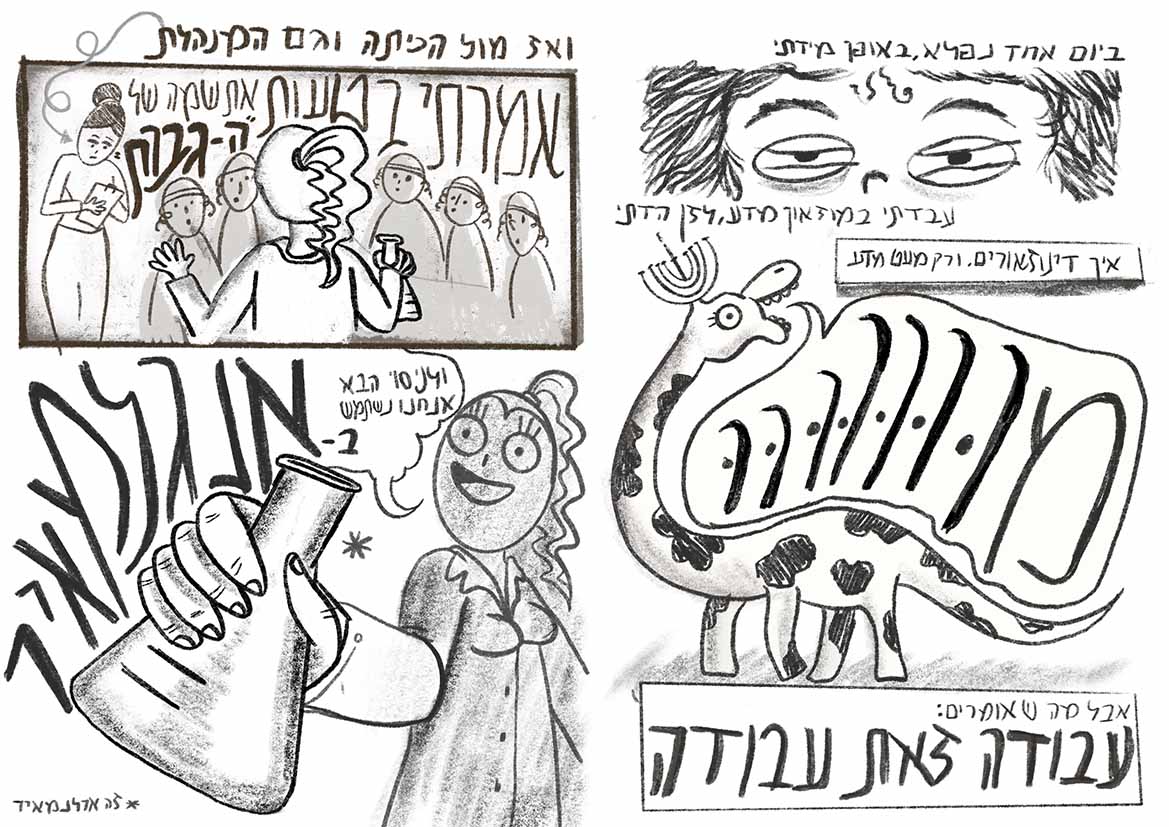 ביום אחד נפלא, באופן מידתי
עבדתי במוזאון מדע, לזן הדתי
אין דינוזאורים. ורק מעט מדע
מוּוּוּוּוּוּ
אבל מה שאומרים:
עבודה זאת עבודה
ואז מול הכיתה וגם המנהלת
אמרתי בטעות את שמה של
ה-גברת
ולניסוי הבא
אנחנו נשתמש
ב-
מנגלמאיר
*
* זה ארלנמאיר